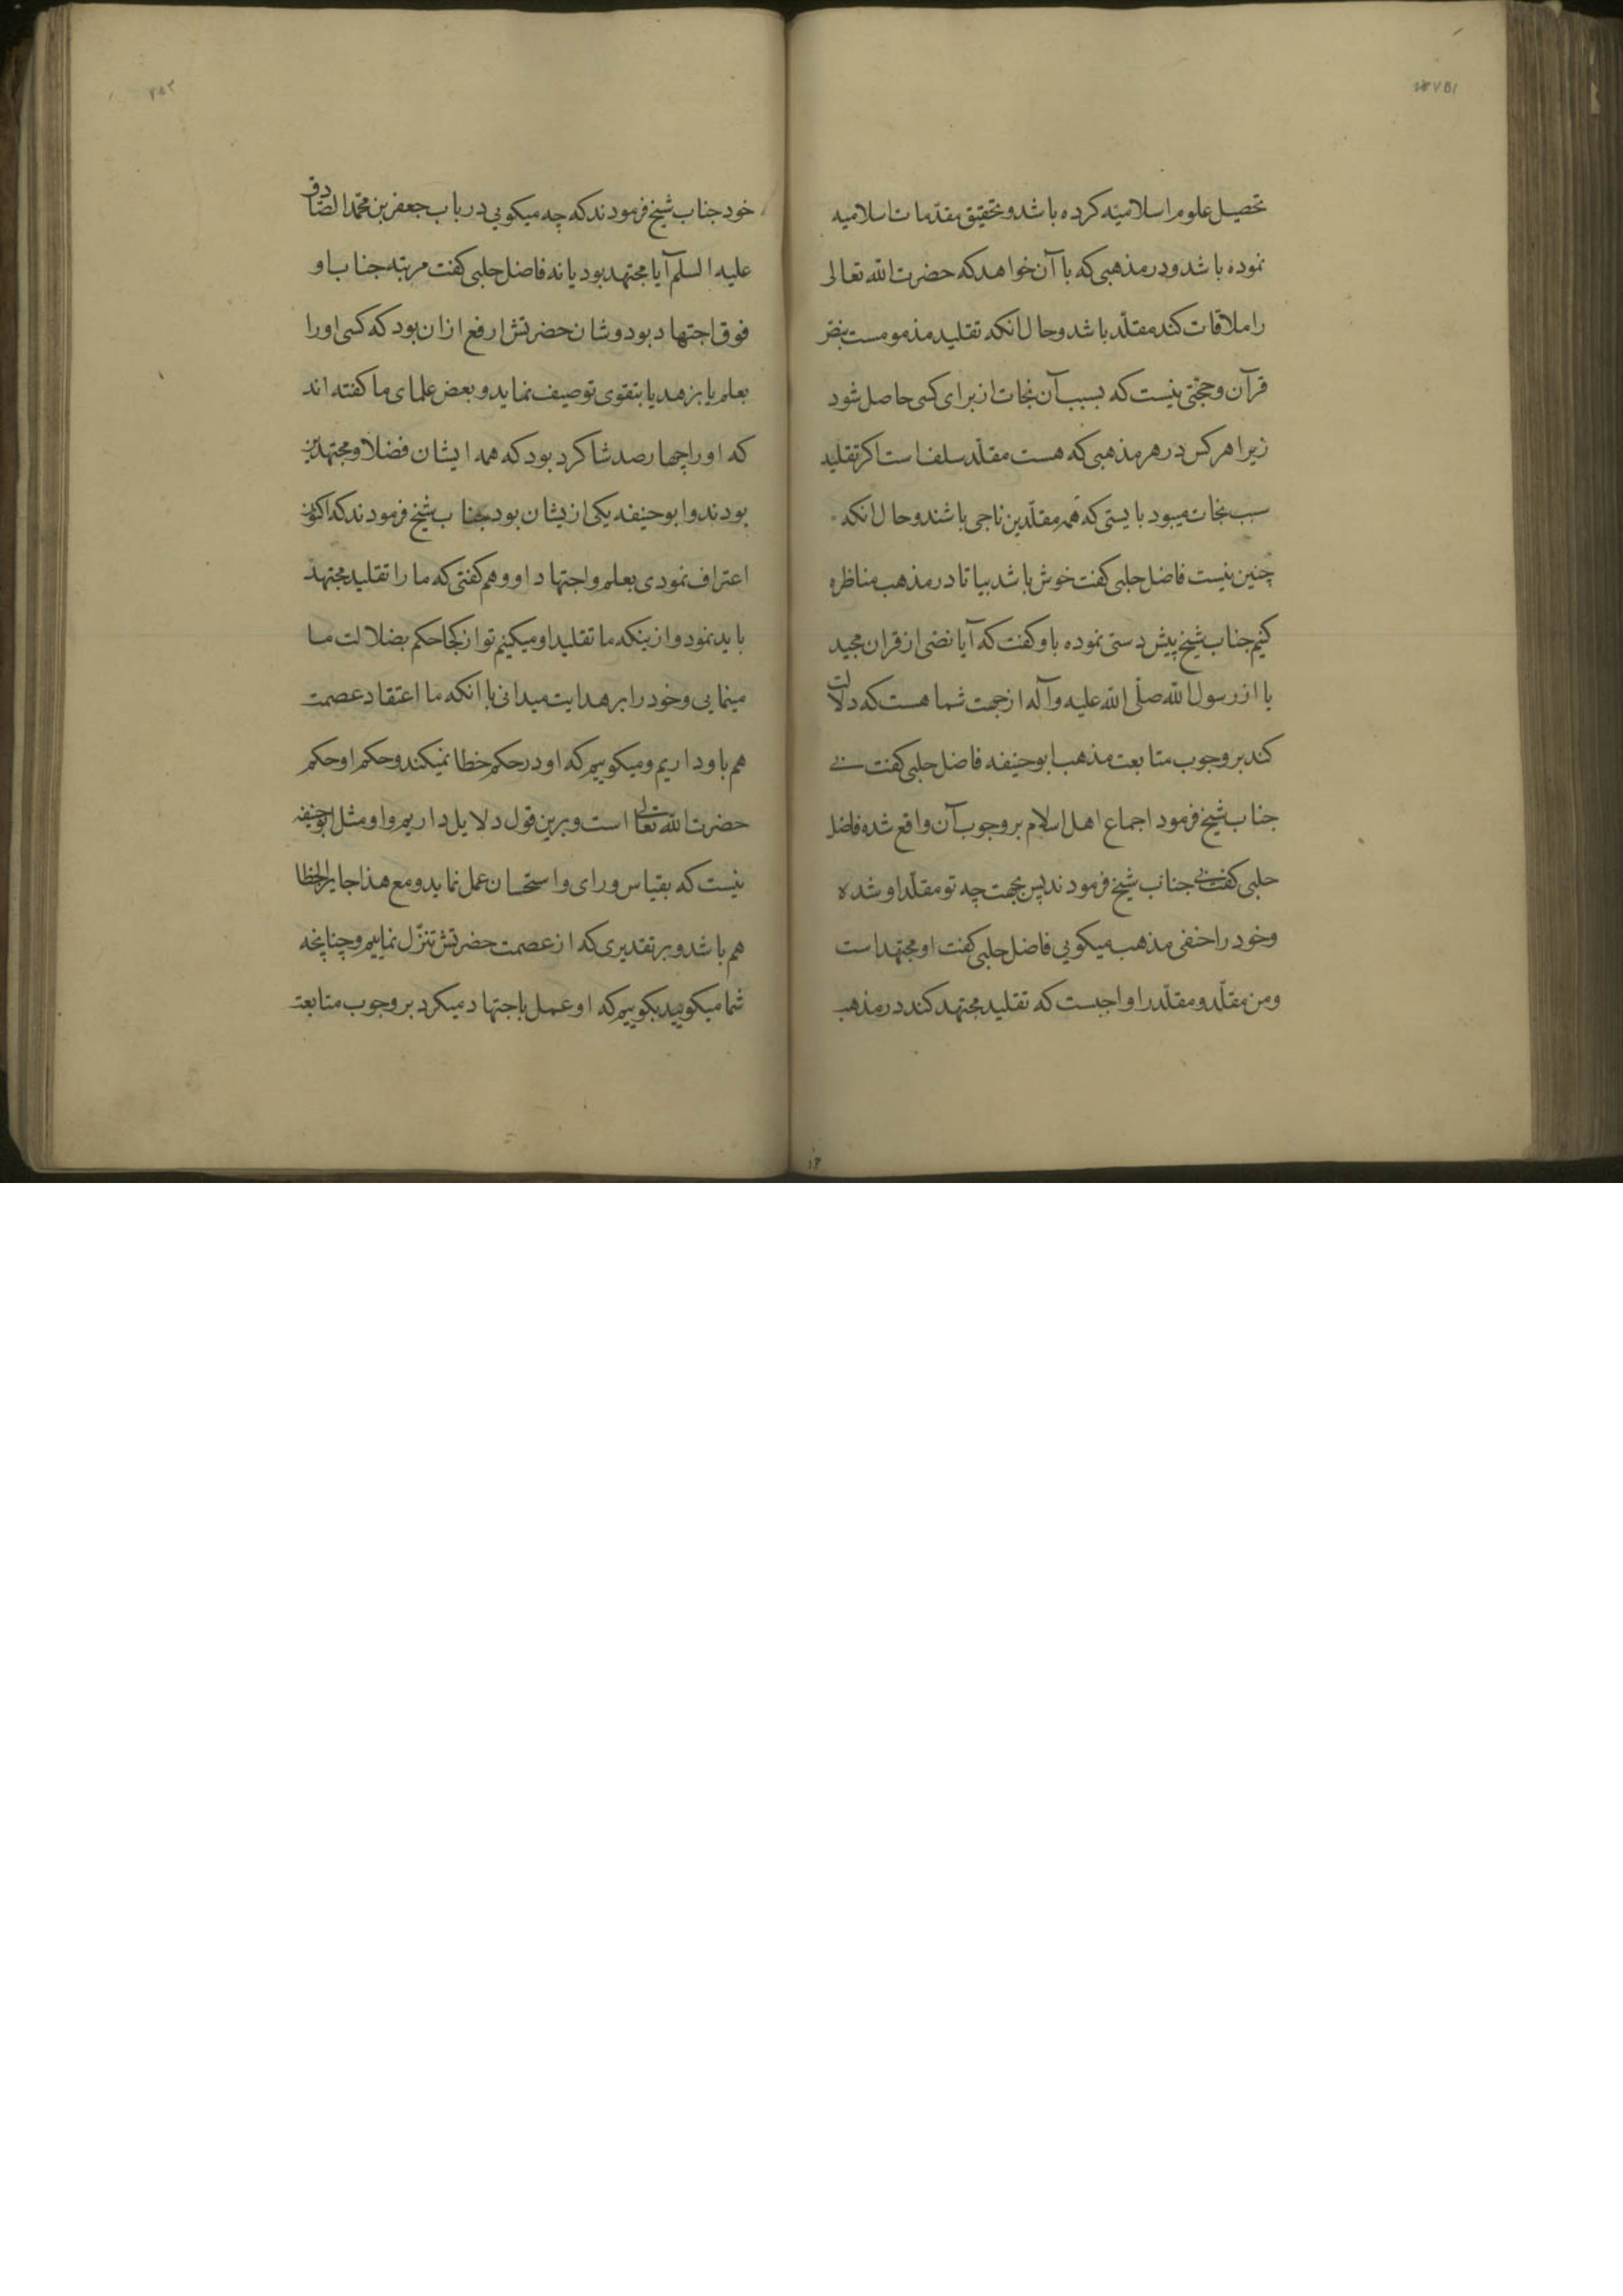 تحصیل علوم اسلامیّه کرده باشد و تحقیق مقدّمات اسلامیه
نموده باشد و در مذهبی که با آن خواهد که حضرت الله تعالی
را ملاقات کند مقلّد باشد و حال آنکه تقلید مذمومست بنصّ
قرآن و حجّتی نیست که بسبب آن نجات از برای کسی حاصل شود
زیرا هر کس در هر مذهبی که هست مقلّد سلف است اکر تقلید
سبب نجات میبود بایستی که همه مقلّدین ناجی باشند و حال انکه
چنین نیست فاضل حلبی کفت خوش باشد بیا تا در مذهب مناظره
کنیم جناب شیخ پیش دستی نموده باو کفت که آیا نصّی از قران مجید
یا از رسول الله صلّی الله علیه وآله از جهت شما هست که دلالت
کند بر وجوب متابعت مذهب ابو حنیفه فاضل حلبی کفت نی
جناب شیخ فرمود اجماع اهل اسلام بر وجوب آن واقع شده فاضل
حلبی کفت نی جناب شیخ فرمودند پس بجهت چه تو مقلّد او شده
وخود را حنفی مذهب میکویی فاضل حلبی کفت او مجتهد است
ومن مقلّد و مقلّد را واجبست که تقلید مجتهد کند در مذهب
۷۵۱
خود جناب شیخ فرمودند که چه میکویی در باب جعفر بن محمّد الصّادق
علیه السلم آیا مجتهد بود یا نه فاضل حلبی کفت مرتبه جناب او
فوق اجتهاد بود و شان حضرتش ارفع از ان بود که کسی اورا
بعلم یا بزهد یا بتقوی توصیف نماید و بعض علمای ما کفته اند
که اورا چهارصد شاکرد بود که همه ایشان فضلا و مجتهدین
بودند و ابو حنیفه یکی از یشان بود جناب شیخ فرمودند که اکنون
اعتراف نمودی بعلم و اجتهاد او و هم کفتی که ما را تقلید مجتهد
باید نمود و ازینکه ما تقلید او میکنیم تو از کجا حکم بضلالت ما
مینمایی وخود را بر هدایت میدانی با انکه ما اعتقاد عصمت
هم باو داریم و میکوییم که او در حکم خطا نمیکند و حکم او حکم
حضرت الله تعالی است و برین قول دلایل داریم و او مثل ابو حنیفه
نیست که بقیاس و رای و استحسان عمل نماید و مع هذا جایز الخطا
هم باشد و بر تقدیری که از عصمت حضرتش تنزّل نماییم و چنانچه
شما میکویید بکوییم که او عمل باجتهاد میکرد بر وجوب متابعت
۷۵۲